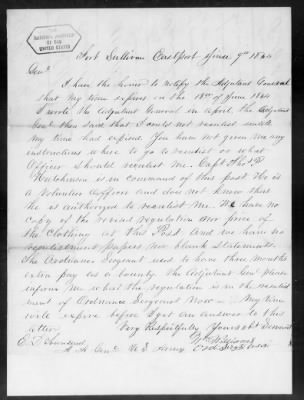 NATIONAL ARCHIVES
OF THE
UNITED STATES
Fort Sullivan Eastport June 7th 1864
Genl
I have the honor to notify the Adjutant General
that my time expires on the 18th of June 1864
I wrote the Adjutant General in April the Adjutant
Genl then said that I could not reenlist until
My time had expired You have not given me any
instructions where to go to reenlist or what
Officer should reenlist me. Capt Thos P
Hutchinson is in command of this post He is
a Volunteer Officer and does not know that
he is authorized to reenlist me We have no
copy of the revised regulation nor price of
the Clothing at this Post And we have no
reenlistment papers nor blank statements.
The Ordnance Sergeant used to have three months
extra pay as a bounty the Adjutant Genl Please
inform me what the regulation is in the reenlist
ment of Ordnance Sergeant Now My time
will expire before I get an answer to this
letter
Very Respectfully Your obt Servant
E. D. Townsend
A. A. Genl U. S. Army
Ord Sergt U.S.A.